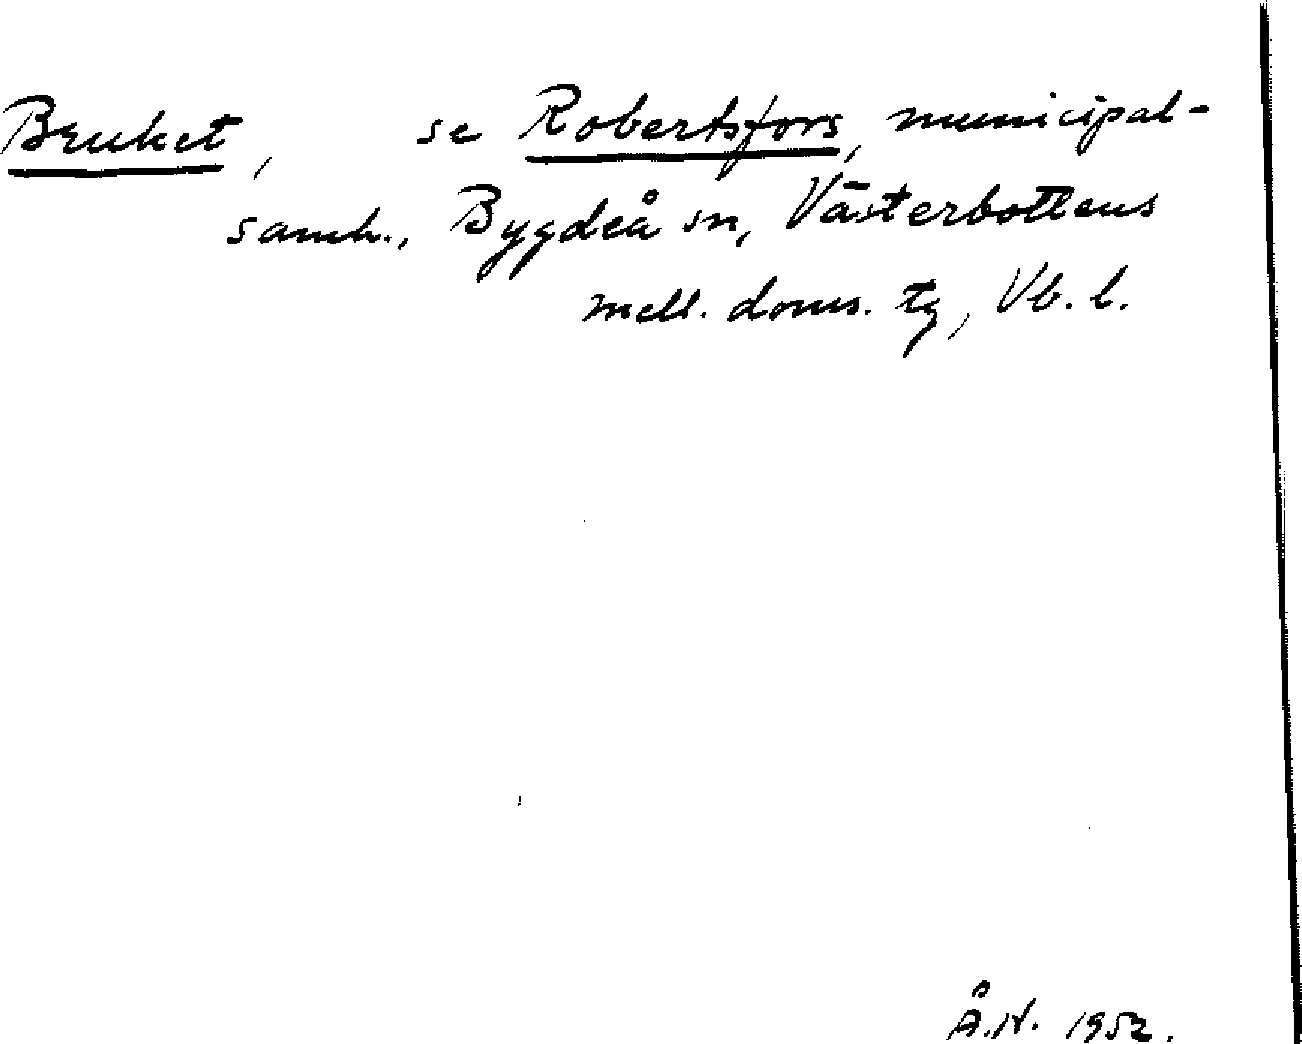 Bruket, se Robertsfors, municipal-
samh., Bygdeå sn, Västerbottens
mell. doms. tg, Vb. l.
Å.N. 1952.